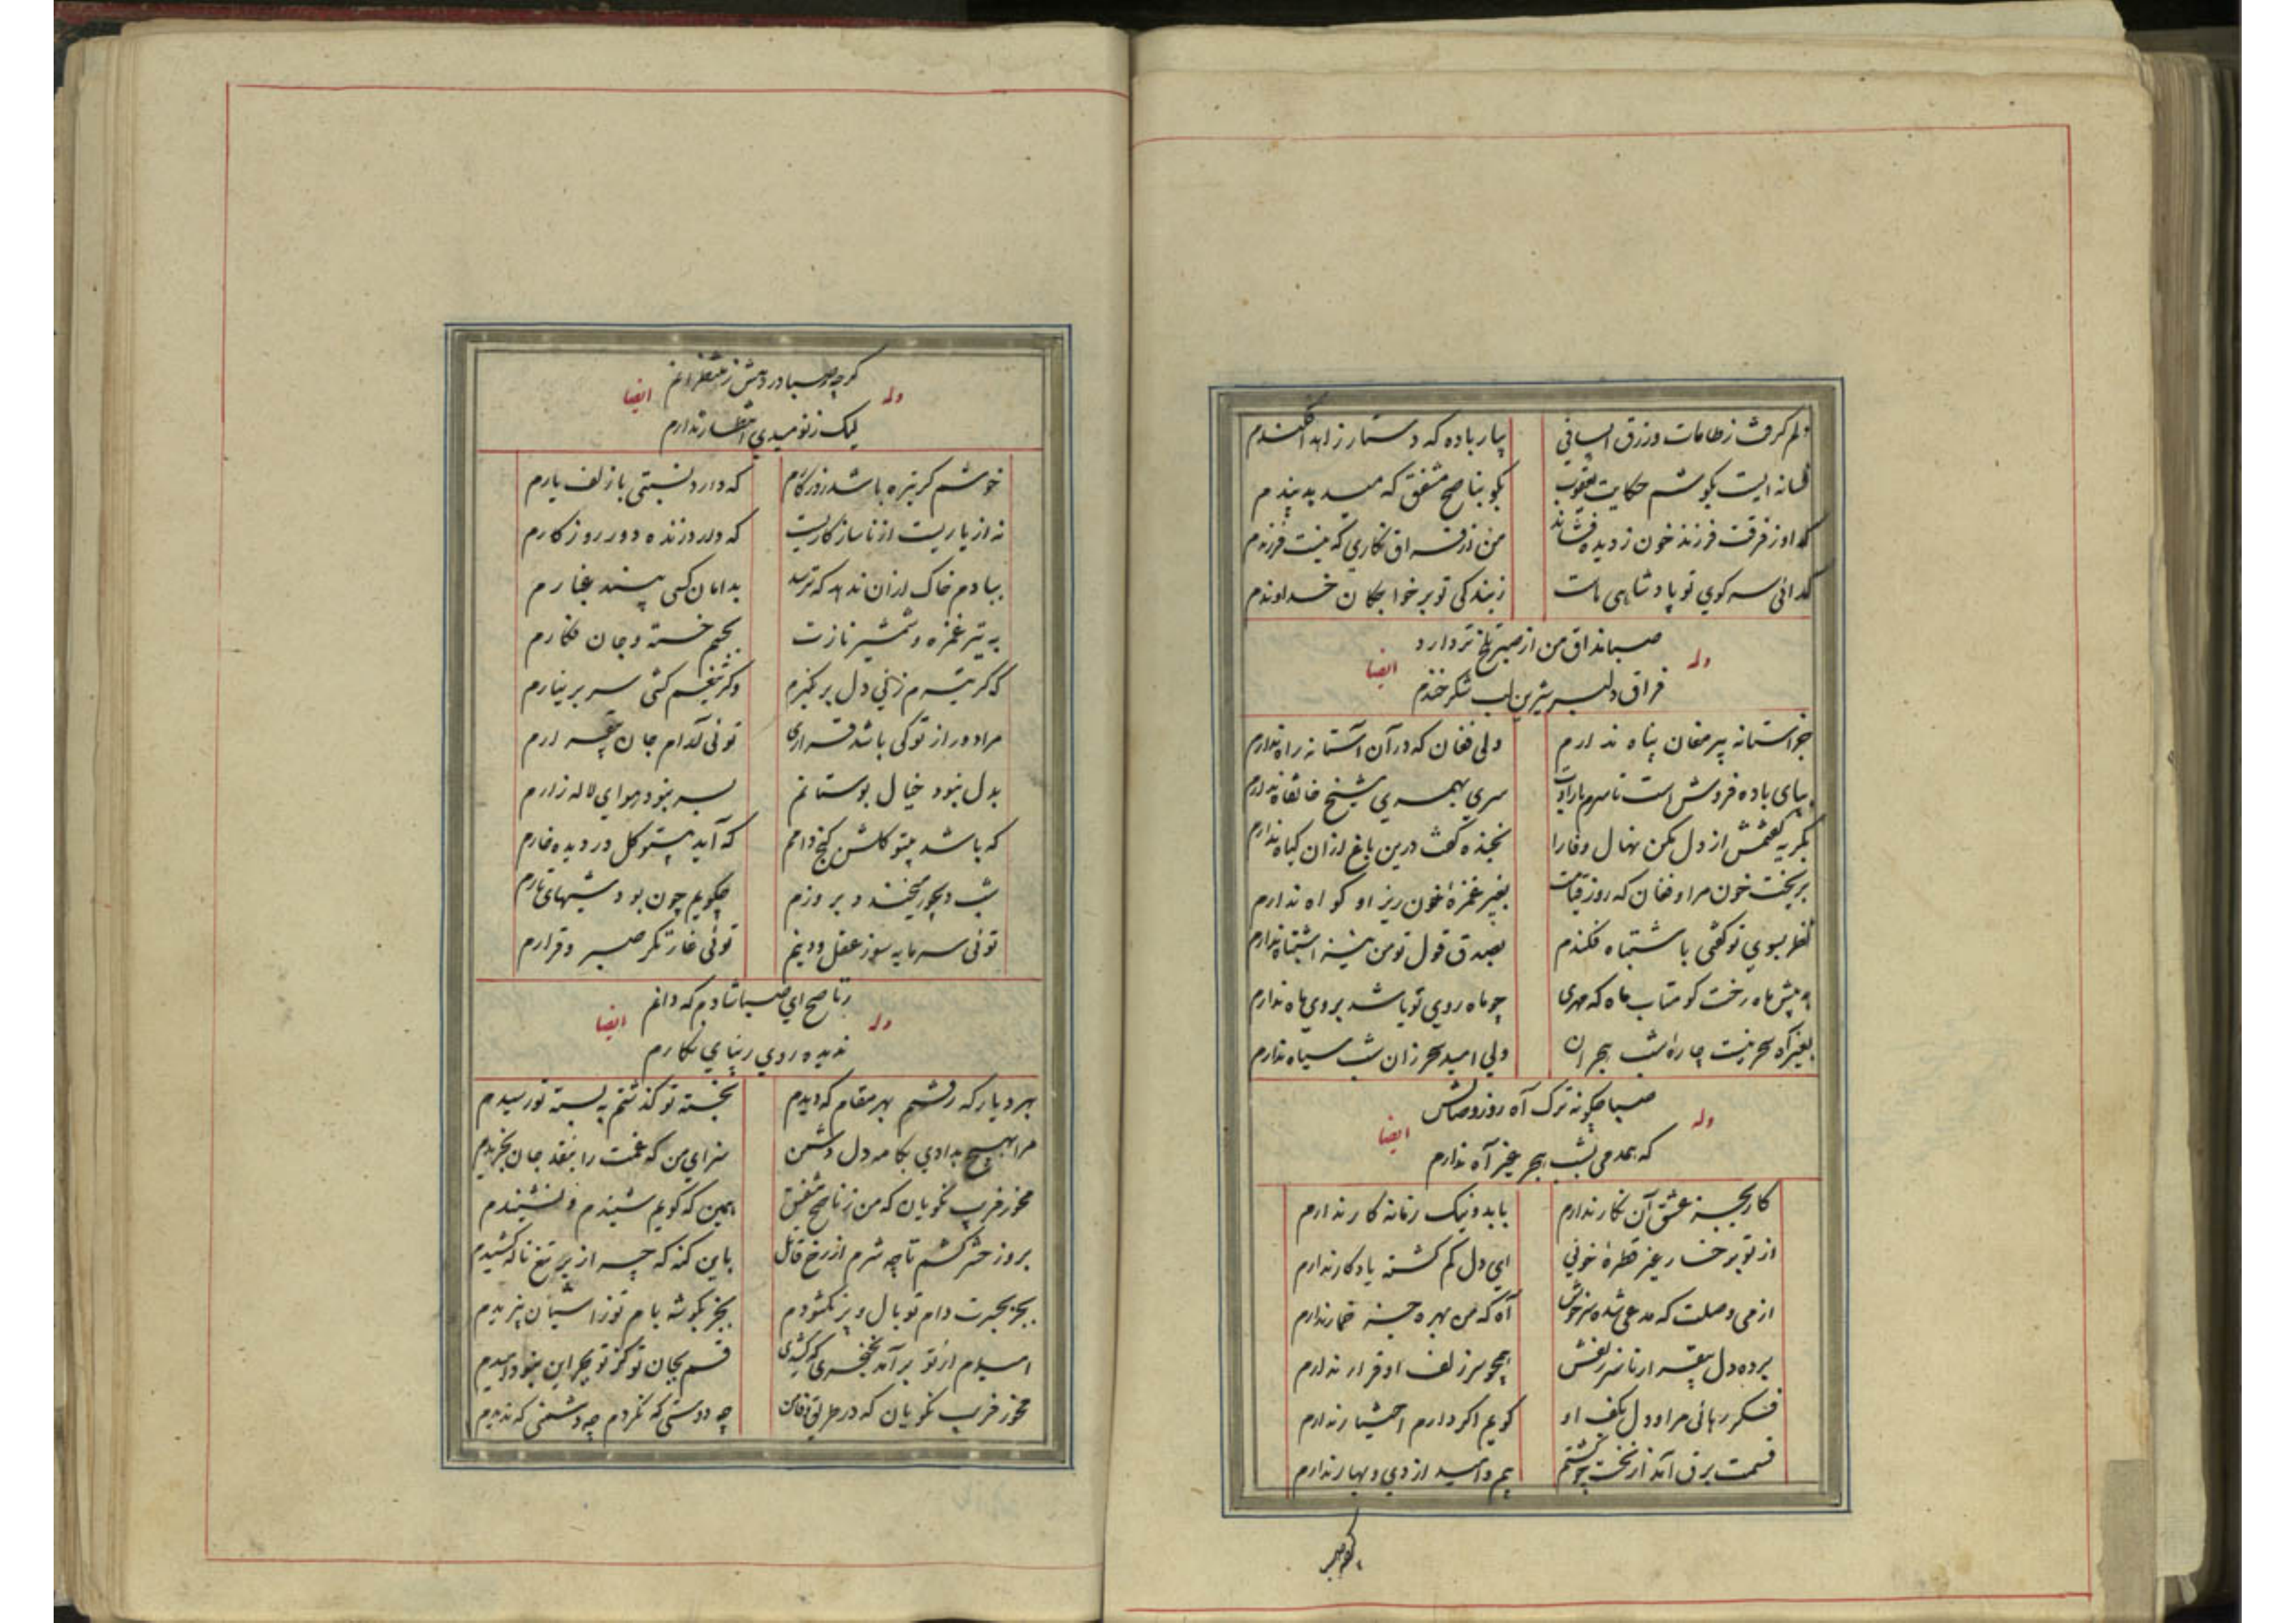 دلم گرفت ز طامات و زرق ای ساقی بیار باده که دستار زاهد افکندم
فسانه ایست بگوشم حکایت یعقوب بگو بناصح مشفق که میدهد پندم
که او ز فرقت فرزند خون ز دیده فشاند من از فراق نگاری که نیست فرزندم
گدائی سر کوی تو پادشاهی ماست ز بندگی تو بر خواجگان خداوندم
صبا مذاق من از صبر تلخ تر دارد
وله ایضا
فراق دلبر شیرین لب شکرخندم
جز آستانه پیر مغان پناه ندارم ولی فغان که در آن آستانه راه ندارم
بپای باده فروش است تا سرم بارادت سری بهمسری شیخ خانقاه ندارم
بگریه گفتمش از دل مکن نهال وفارا بخنده گفت درین باغ ازان گیاه ندارم
بریخت خون مرا و فغان که روز قیامت بغیر غمزه خون ریز او گواه ندارم
نظر بسوی تو گفتی باشتباه فکندم بصدق قول تو من نیز اشتباه ندارم
به پیش ماه رخت گو متاب ماه که مهری چو ماه روی تو باشد بروی ماه ندارم
بغیر آه سحر نیست چاره شب هجران ولی امید سحر زان شب سیاه ندارم
صبا چگونه ترک آه روز وصالش
وله ایضا
که همدمی بشب هجر غیر آه ندارم
کار بجز عشق آن نگار ندارم با بد و نیک زمانه کار ندارم
از تو برخسار غیر قطره خونی ای دل گم گشته یادگار ندارم
از می وصلت که مدعی شده سرخوش آه که من بهره جز خمار ندارم
برده دل بیقرار تا سر زلفش همچو سر زلف او قرار ندارم
فکر رهائی مرا و دل بکف او گویم اگر دارم اختیار ندارم
قسمت برق آمد از نخست چو کشتم بیم و امید از دی و بهار ندارم
گرچه صبا در رهش ز منتظرانم
وله ایضا
لیک ز نومیدی انتظار ندارم
خوشم گر تیره باشد روزگارم که دارد نسبتی با زلف یارم
نه از یاریت از ناسازگاریت که دور از زنده دور روزگارم
ببادم خاک ازان ندهد که ترسد بدامان کسی بیند غبارم
به تیر غمزه و شمشیر نازت بجسم خسته و جان فگارم
که گر تیرم زنی دل بر نگیرم وگر تیغم کشی سر بر نیارم
مرا دور از تو کی باشد قراری توئی آرام جان بیقرارم
بدل نبود خیال بوستانم بسر نبود هوای لاله زارم
که باشد بیتو گلشن کنج دامم که آید بیتو گل در دیده خارم
شب دیجور میخندد بروزم چگویم چون بود شبهای تارم
توئی سرمایه سوز عقل و دینم توئی غارتگر صبر و قرارم
ز ناصح ای صبا شادم که دانم
وله ایضا
ندیده روی زیبای نگارم
بهر دیار که رفتم بهر مقام که دیدم بخسته تو گذشتم به بسته تو رسیدم
مرا بهیچ بدادی بکام دل دشمن سزای من که غمت را بنقد جان بخریدم
مخور فریب نکویان که من ز ناصح مشفق همین که گویم شنیدم و نشنیدم
بروز حشر کشم تا چه شرم از رخ قاتل باین گنه که چرا زیر تیغ ناله کشیدم
بجز بحسرت دام تو بال و پر نگشودم بجز بگوشه بام تو ز آشیان نپریدم
امیدم از تو برآمد بخنجری که کشیدی قسم بجان تو کز تو بجز این نبود امیدم
مخور فریب نکویان که در طریق وفاشان چه دوستی که نکردم چه دشمنی که ندیدم
گرچه صبا